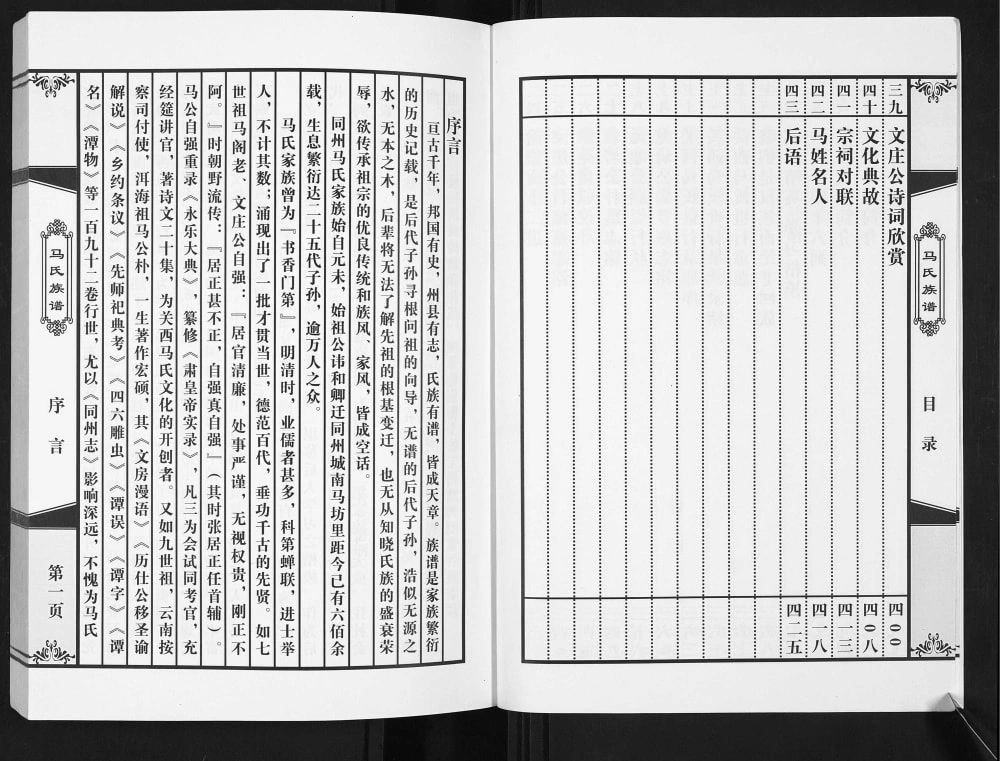 马氏族谱
目录
三九 文庄公诗词欣赏 四００
四十 文化典故 四０八
四一 宗祠对联 四一三
四二 马姓名人 四一八
四三 后语 四二五
序言
亘古千年，邦国有史，州县有志，氏族有谱，皆成天章。族谱是家族繁衍
的历史记载，是后代子孙寻根问祖的向导，无谱的后代子孙，浩似无源之
水，无本之木，后辈将无法了解先祖的根基变迁，也无从知晓氏族的盛衰荣
辱，欲传承祖宗的优良传统和族风、家风，皆成空话。
同州马氏家族始自元末，始祖公讳和卿迁同州城南马坊里距今已有六佰余
载，生息繁衍达二十五代子孙，逾万人之众。
马氏家族曾为『书香门第』，明清时，业儒者甚多，科第蝉联，进士举
人，不计其数；涌现出了一批才贯当世，德范百代，垂功千古的先贤。如七
世祖马阁老、文庄公自强：『居官清廉，处事严谨，无视权贵，刚正不
阿。』时朝野流传：『居正甚不正，自强真自强』（其时张居正任首辅）。
马公自强重录《永乐大典》，纂修《肃皇帝实录》，凡三为会试同考官，充
经筵讲官，著诗文二十集，为关西马氏文化的开创者。又如九世祖，云南按
察司付使，洱海祖马公朴，一生著作宏硕，其《文房漫语》《历仕公移圣谕
解说》《乡约条议》《先师祀典考》《四六雕虫》《谭误》《谭字》《谭
名》《潭物》等一百九十二卷行世，尤以《同州志》影响深远，不愧为马氏
马氏族谱
序言
第一页